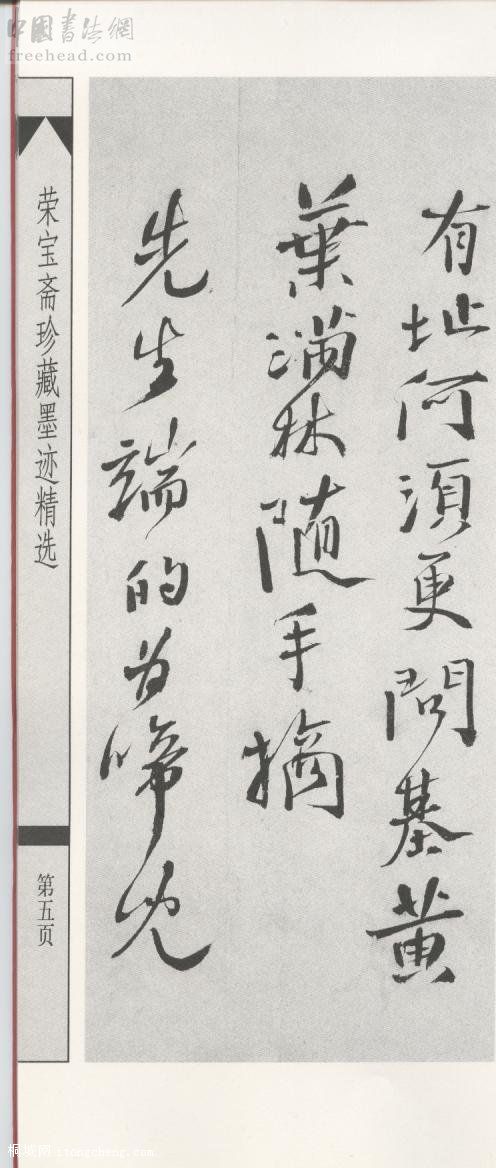 中國書法網
freehead.com
有址何須更問基黄
葉満林随手摘
先生端的为啼児
荣宝斋珍藏墨迹精选
第五页
桐城网 itongcheng.com